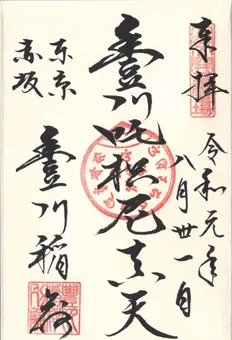 来拝
令和元年
八月卅一日
豊川吒枳尼真天
東京
赤坂
豊川稲荷